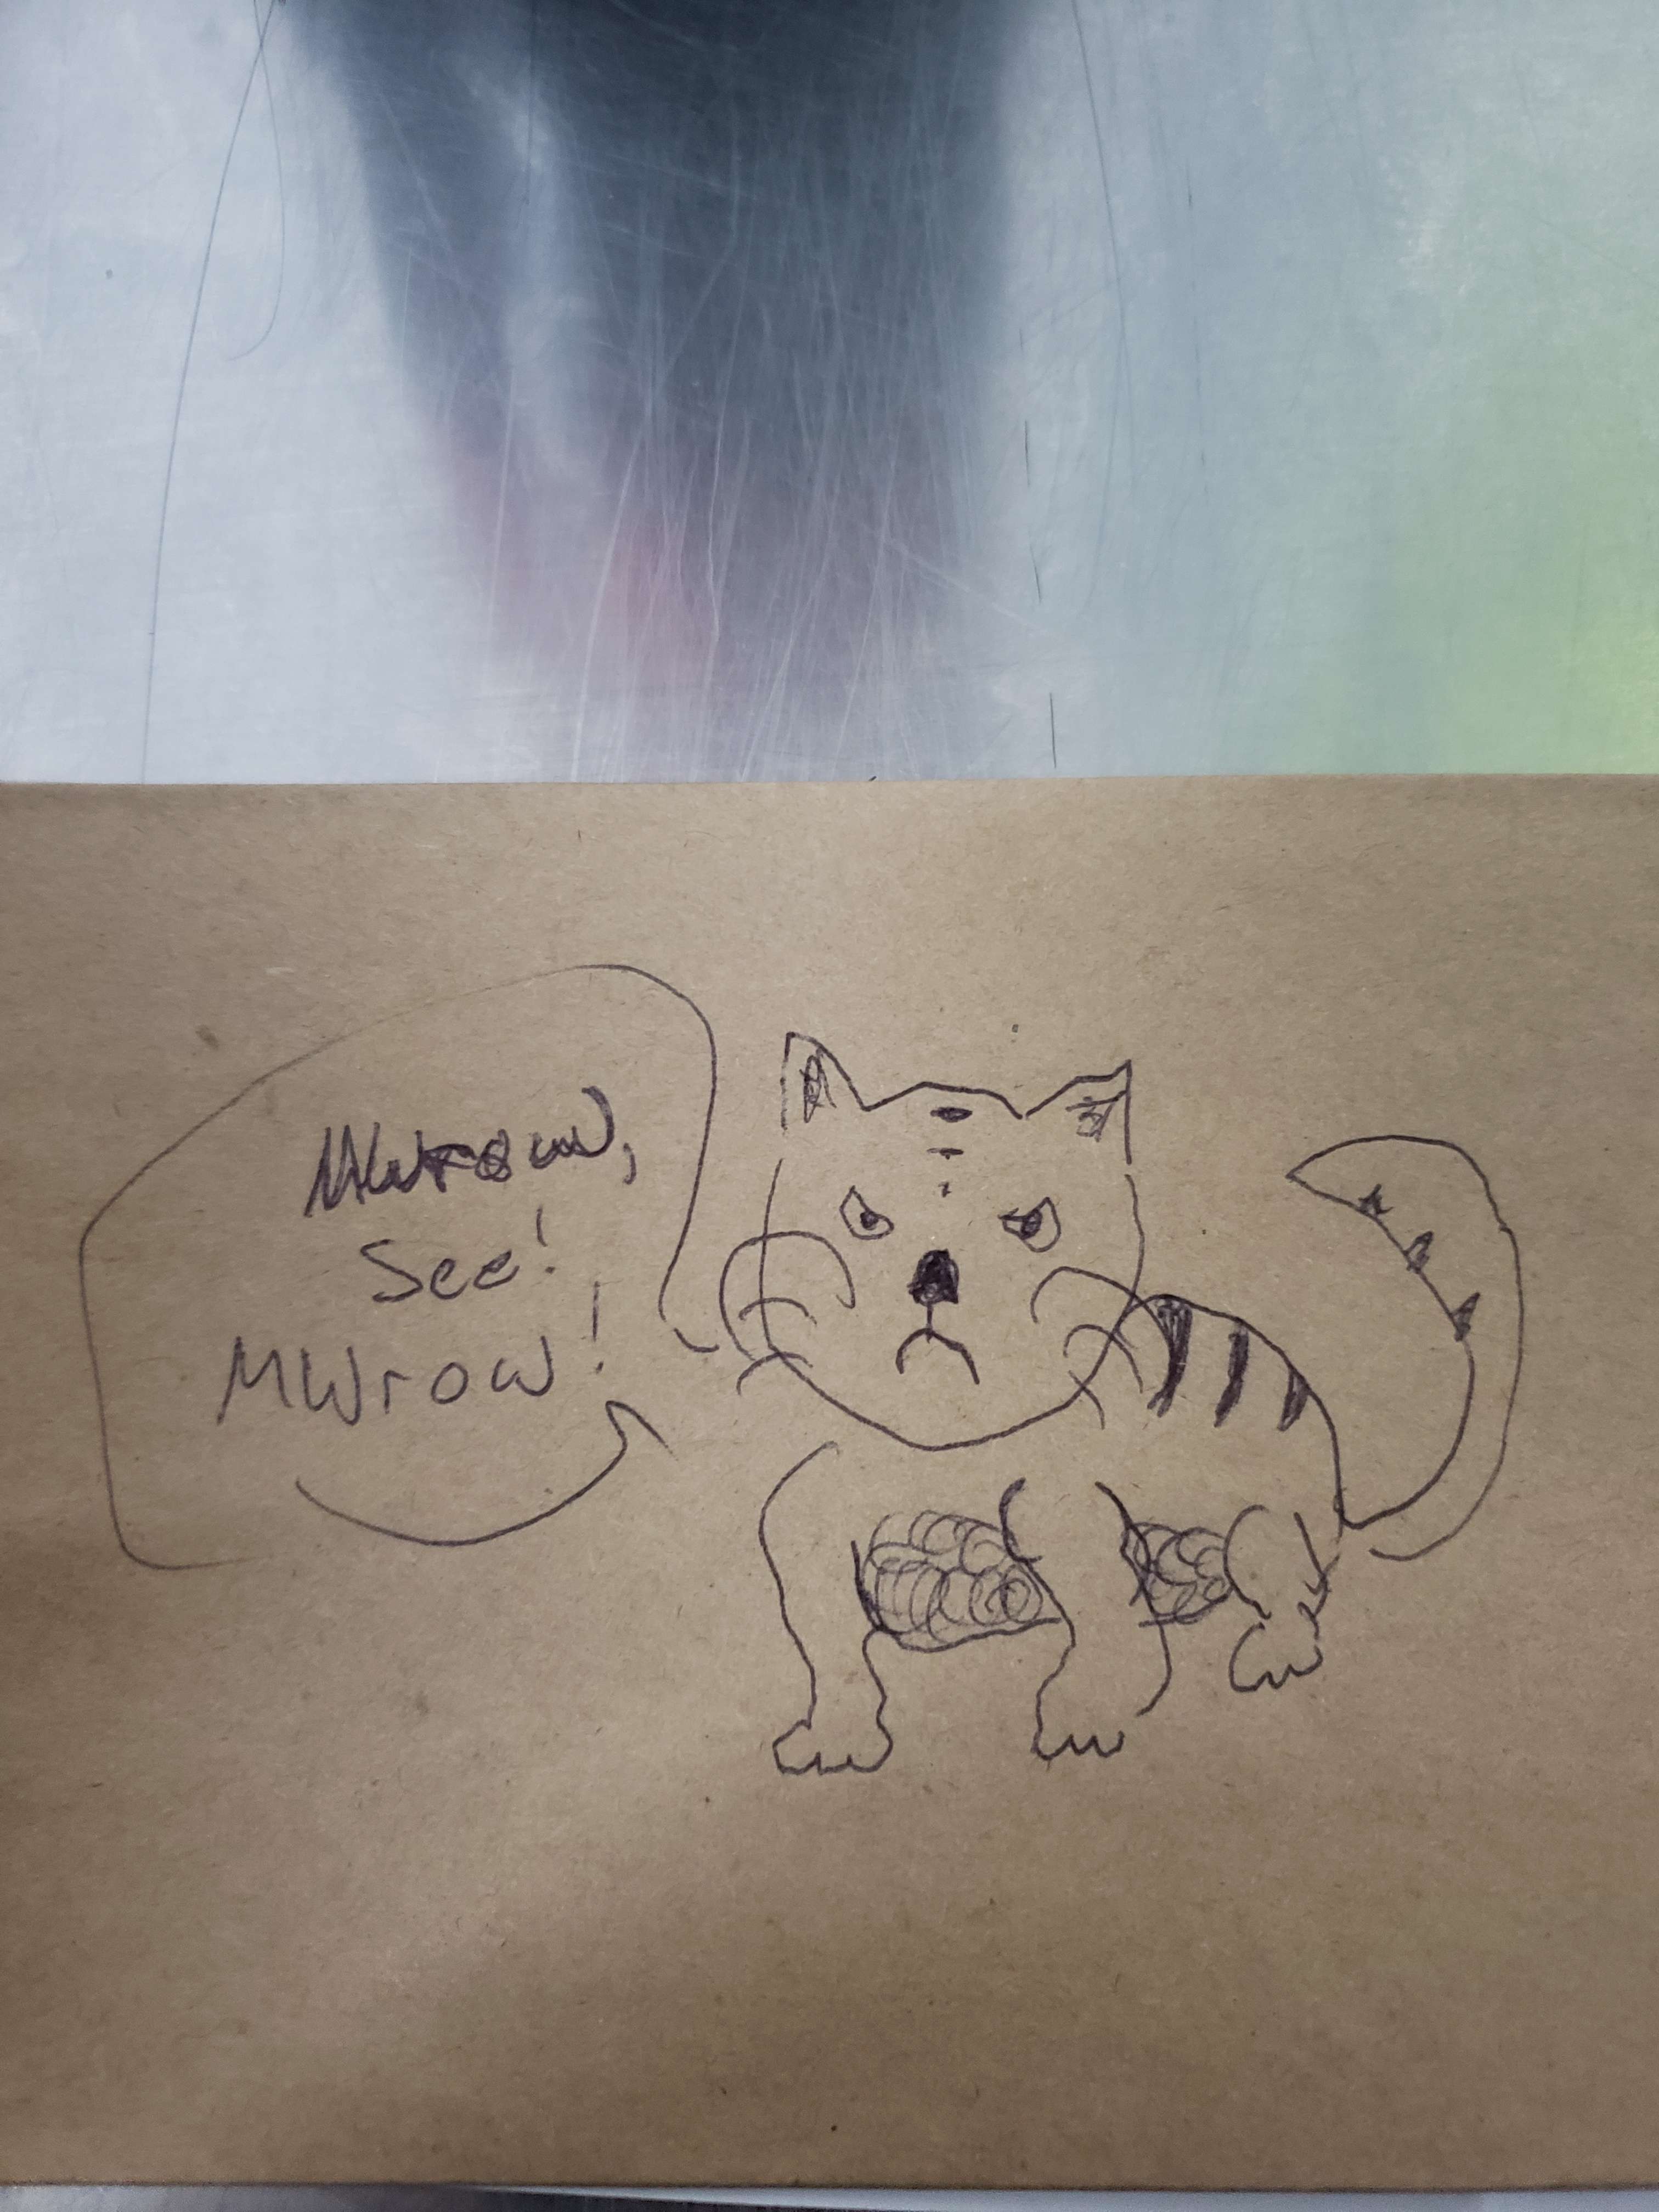 Mwrow,
See!
MWrow!